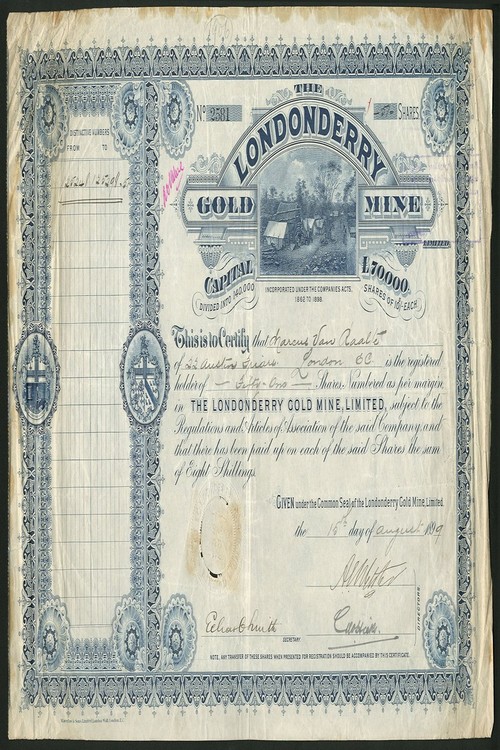 THE
Nº 2591
SHARES
LONDONDERRY
GOLD MINE
LIMITED
CAPITAL £70,000.
DIVIDED INTO 140,000 SHARES OF 10/- EACH.
INCORPORATED UNDER THE COMPANIES ACTS,
1862 TO 1898.
DISTINCTIVE NUMBERS
FROM TO
This is to Certify that Marcus Van Raalte
of 22 Austin Friars London EC is the registered
holder of — Fifty-One — Shares Numbered as per margin,
in THE LONDONDERRY GOLD MINE, LIMITED, subject to the
Regulations and Articles of Association of the said Company, and
that there has been paid up on each of the said Shares the sum
of Eight Shillings.
GIVEN under the Common Seal of the Londonderry Gold Mine, Limited.
the 15th day of August 1899
DIRECTORS
SECRETARY
NOTE, ANY TRANSFER OF THESE SHARES WHEN PRESENTED FOR REGISTRATION SHOULD BE ACCOMPANIED BY THIS CERTIFICATE.